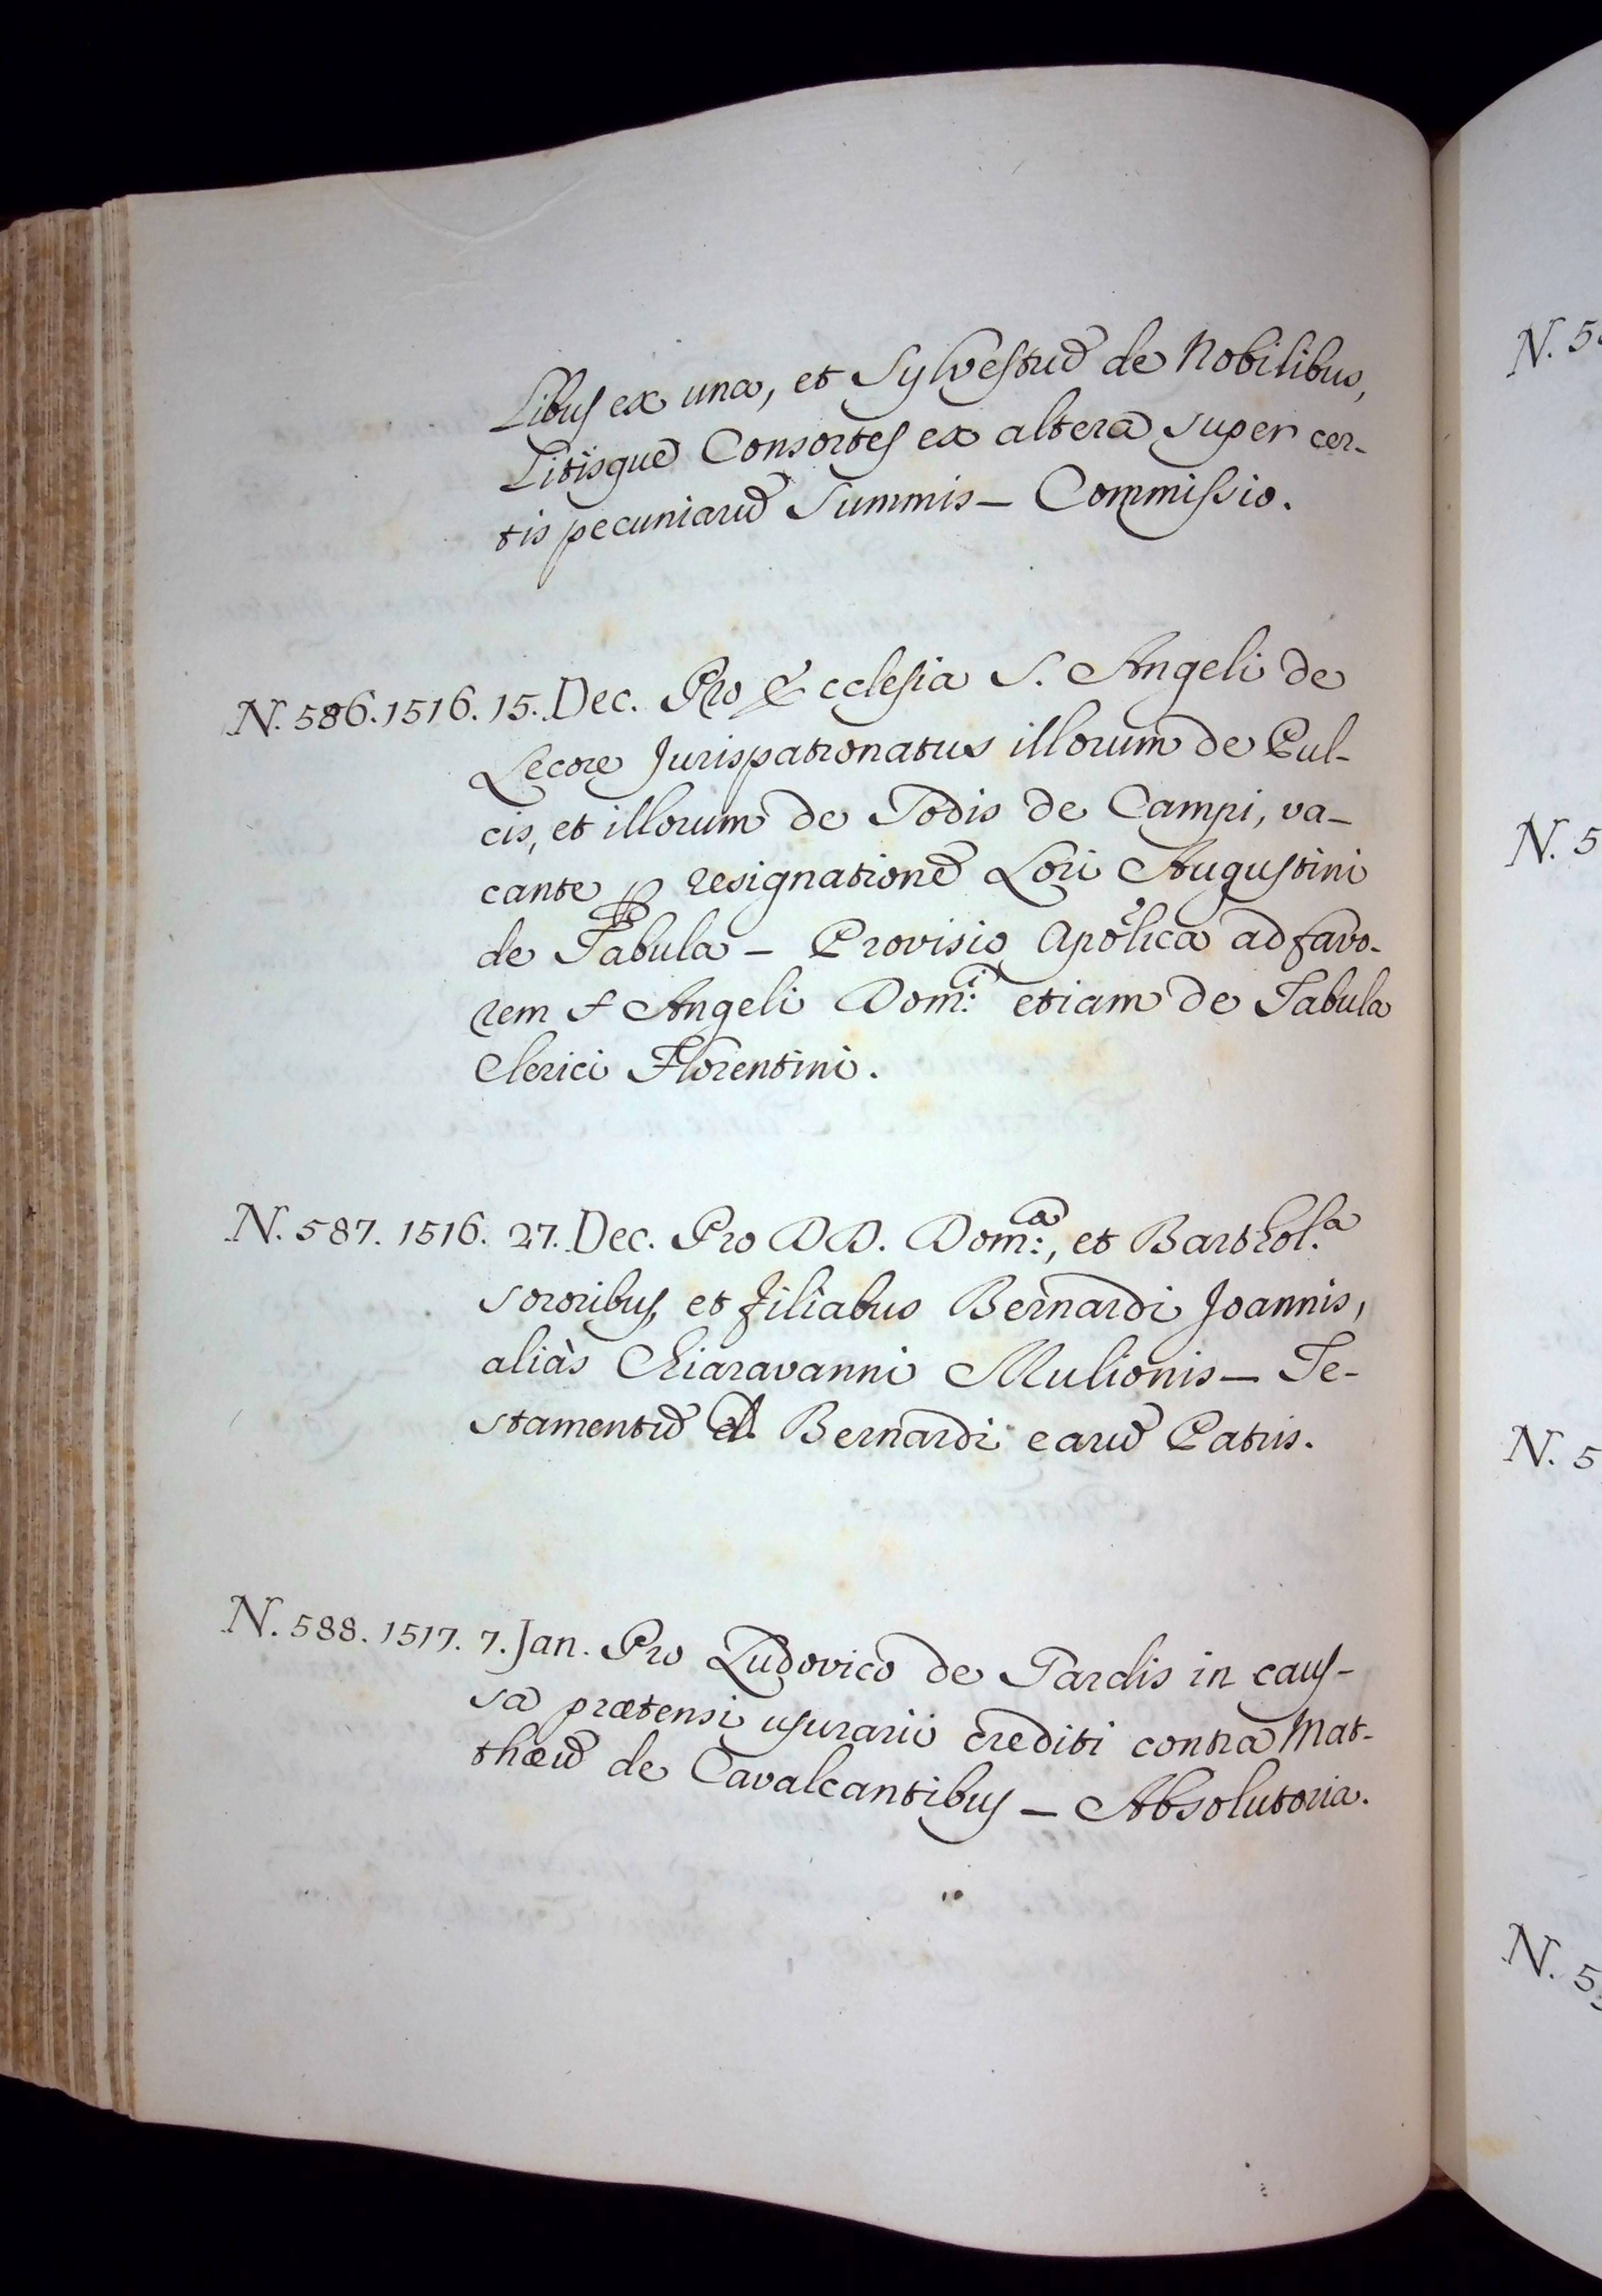 libus ex una, et Sylvestrū de Nobilibus,
Litisque Consortes ex altera super cer-
tis pecuniarū Summis – Commissio.
N. 586. 1516. 15. Dec. Pro Ecclesia S. Angeli de
Lecore Jurispatronatus illorum de Pul-
cis, et illorum de Todis de Campi, va-
cante p resignationē Lori Augustini
de Tabula – Provisio Apōlica ad favo-
rem f Angeli Dom:i etiam de Tabula
Clerici Florentini.
N. 587. 1516. 27. Dec. Pro DD. Dom:a, et Barthol.a
Sororibus, et filiabus Bernardi Joannis,
aliàs Chiaravanni Mulionis – Te-
stamentū d. Bernardi earū Patris.
N. 588. 1517. 7. Jan. Pro Ludovico de Pardis in caus-
sa prætensi usurarii crediti contra Mat-
thæū de Cavalcantibus – Absolutoria.
N. 5
N. 5
N. 5
N. 5